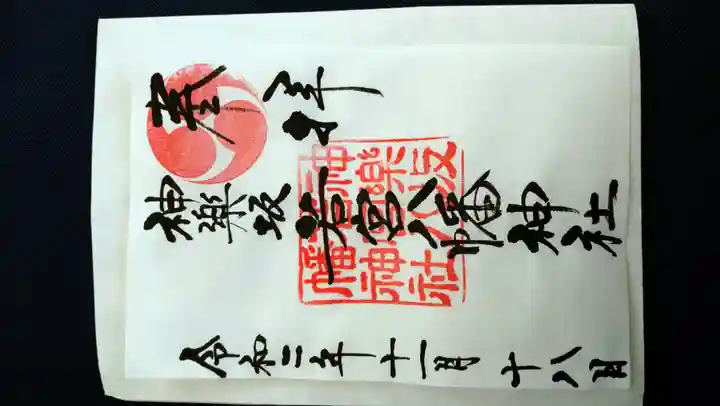 奉拝
神楽坂 若宮八幡神社
令和二年十一月十八日
神楽坂
若宮八
幡神社